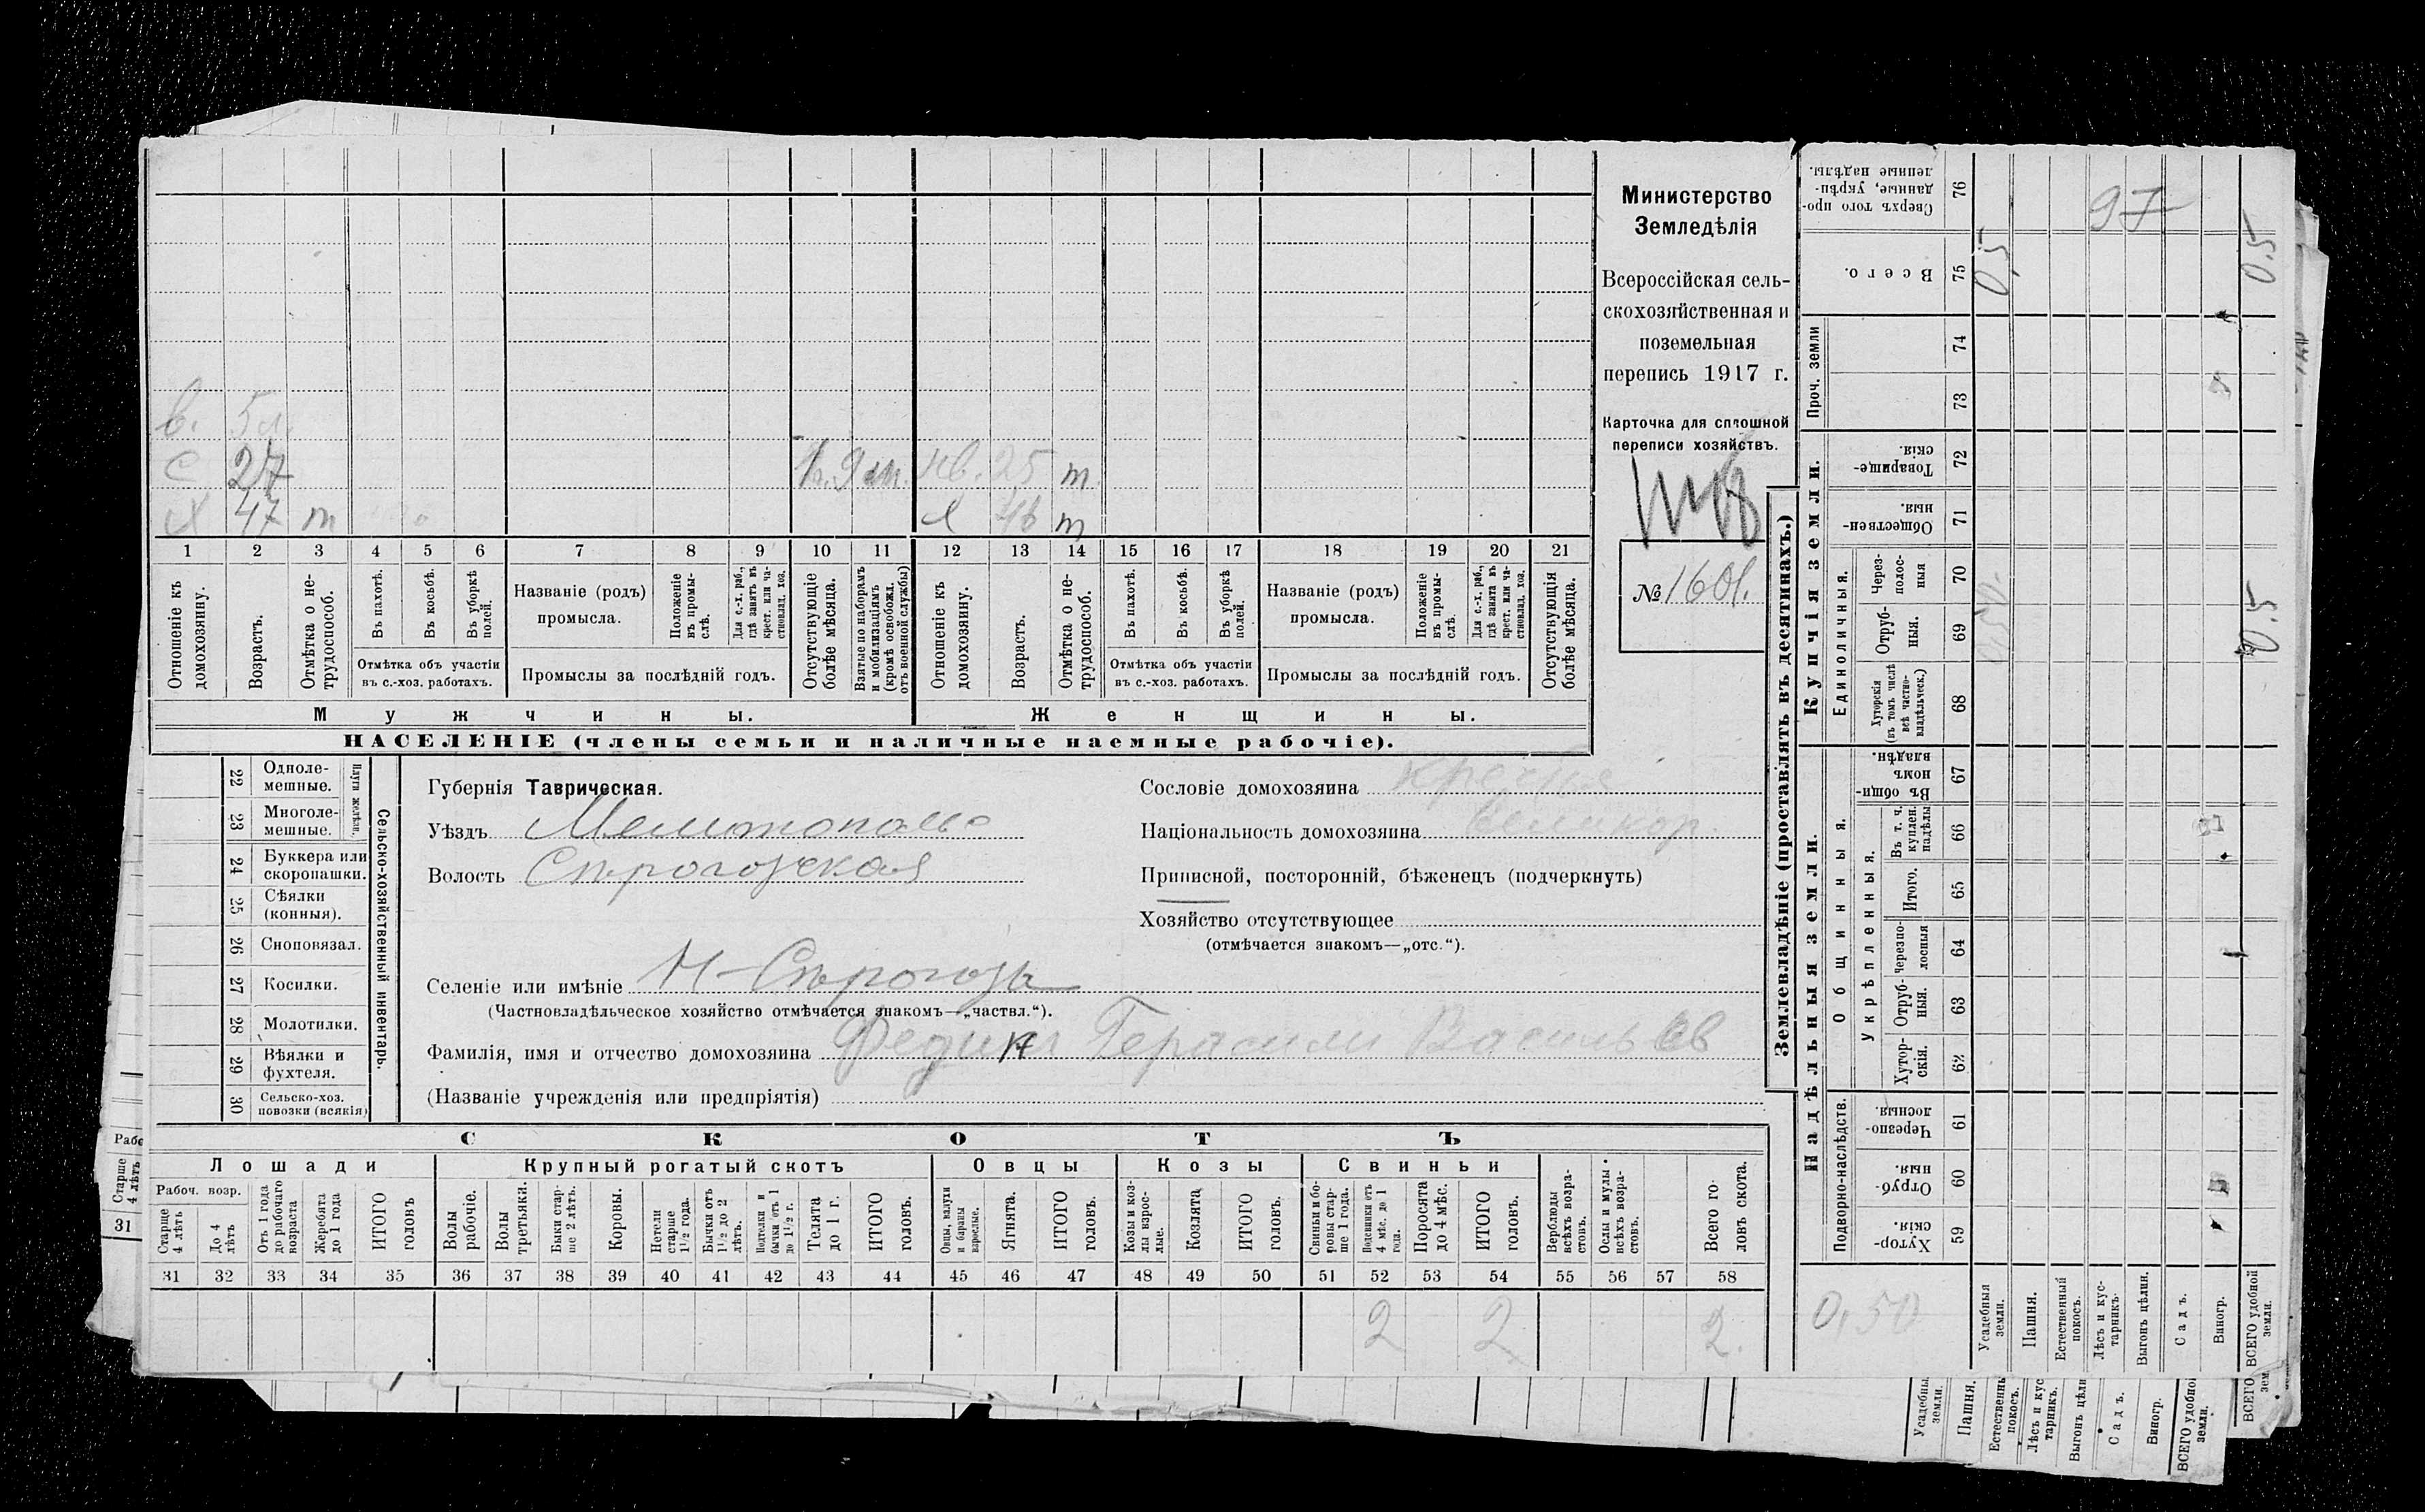 в. 5 л.
С 27 9 м. нв. 25 т.
Х 47 т Х 46 т
1 2 3 4 5 6 7 8 9 10 11 12 13 14 15 16 17 18 19 20 21
Отношеніе къ домохозяину.
Возрастъ.
Отмѣтка о не-трудоспособ.
Въ пахотѣ.
Въ косьбѣ.
Въ уборкѣ полей.
Отмѣтка объ участіи
въ с.-хоз. работахъ.
Названіе (родъ)
промысла.
Положеніе въ промы-слѣ.
Для с.-х. раб., гдѣ занятъ въ крест. или ча-стновлад. хоз.
Промыслы за послѣдній годъ.
Отсутствующіе болѣе мѣсяца.
Взятые по наборамъ и мобилизаціямъ (кромѣ освобожд. отъ военной службы)
Отношеніе къ домохозяину.
Возрастъ.
Отмѣтка о не-трудоспособ.
Въ пахотѣ.
Въ косьбѣ.
Въ уборкѣ полей.
Отмѣтка объ участіи
въ с.-хоз. работахъ.
Названіе (родъ)
промысла.
Положеніе въ промы-слѣ.
Для с.-х. раб., гдѣ занята въ крест. или ча-стновлад. хоз.
Промыслы за послѣдній годъ.
Отсутствующія болѣе мѣсяца.
Мужчины. Женщины.
НАСЕЛЕНІЕ (члены семьи и наличные наемные рабочіе).
Министерство
Земледѣлія
Всероссійская сель-
скохозяйственная и
поземельная
перепись 1917 г.
Карточка для сплошной
переписи хозяйствъ.
№ 1601.
22 Одноле-мешные.
23 Многоле-мешные.
Плуги желѣзн.
24 Буккера или скоропашки.
25 Сѣялки (конныя).
26 Сноповязал.
27 Косилки.
28 Молотилки.
29 Вѣялки и фухтеля.
30 Сельско-хоз. повозки (всякія)
Сельско-хозяйственный инвентарь.
Губернія Таврическая.
Уѣздъ
Волость Сѣрогозская
Селеніе или имѣніе Н-Сѣрогозы
(Частновладѣльческое хозяйство отмѣчается знакомъ—„частвл.“).
Фамилія, имя и отчество домохозяина Герасим Васильев
(Названіе учрежденія или предпріятія)
Сословіе домохозяина
Національность домохозяина великор.
Приписной, посторонній, бѣженецъ (подчеркнуть)
Хозяйство отсутствующее
(отмѣчается знакомъ—„отс.“).
СКОТЪ
Лошади Крупный рогатый скотъ Овцы Козы Свиньи
Рабоч. возр.
Старше 4 лѣтъ
До 4 лѣтъ
Отъ 1 года до рабочаго возраста
Жеребята до 1 года
ИТОГО головъ
Волы рабочіе.
Волы третьяки.
Быки стар-ше 2 лѣтъ.
Коровы.
Нетели старше 1½ года.
Бычки отъ 1½ до 2 лѣтъ.
Подтелки и бычки отъ 1 до 1½ г.
Телята до 1 г.
ИТОГО головъ.
Овцы, валухи и бараны взрослые.
Ягнята.
ИТОГО головъ.
Козы и коз-лы взрос-лые.
Козлята
ИТОГО головъ.
Свиньи и бо-ровы стар-ше 1 года.
Подсвинки отъ 4 мѣс. до 1 года.
Поросята до 4 мѣс.
ИТОГО головъ.
Верблюды всѣхъ возра-стовъ.
Ослы и мулы всѣхъ возра-стовъ.
Всего го-ловъ скота.
31 32 33 34 35 36 37 38 39 40 41 42 43 44 45 46 47 48 49 50 51 52 53 54 55 56 57 58
2 2 2.
Землевладѣніе (проставлять въ десятинахъ.)
Купчія земли.
Надѣльныя земли.
Сверхъ того про-данные, укрѣп-ленные надѣлы. 76
Всего. 75
Проч. земли
74
73
Товарище-скія. 72
Обществен-ныя. 71
Единоличныя.
Через-полос-ныя 70
Отруб-ныя. 69
Хуторскія (въ томъ числѣ всѣ частно-владѣльческ.) 68
Общинныя.
Въ общи-номъ владѣн. 67
Укрѣпленныя.
Въ т. ч. куплен. надѣлы 66
Итого. 65
Черезпо-лосныя 64
Отруб-ныя. 63
Хутор-скія. 62
Подворно-наслѣдств.
Черезпо-лосныя. 61
Отруб-ныя. 60
Хутор-скія. 59
0,5
97
0.5
0,50.
0.5
0,50
Усадебныя земли.
Пашня.
Естественный покосъ.
Лѣсъ и кус-тарникъ.
Выгонъ цѣлин.
Садъ.
Виногр.
ВСЕГО удобной земли.
Рабо
Старше 4 лѣтъ
31
Усадебны земли.
Пашня.
Естественны покосъ.
Лѣсъ и кус тарникъ.
Выгонъ цѣли
Садъ.
Виногр.
ВСЕГО удобно земли.
ВСЕГО